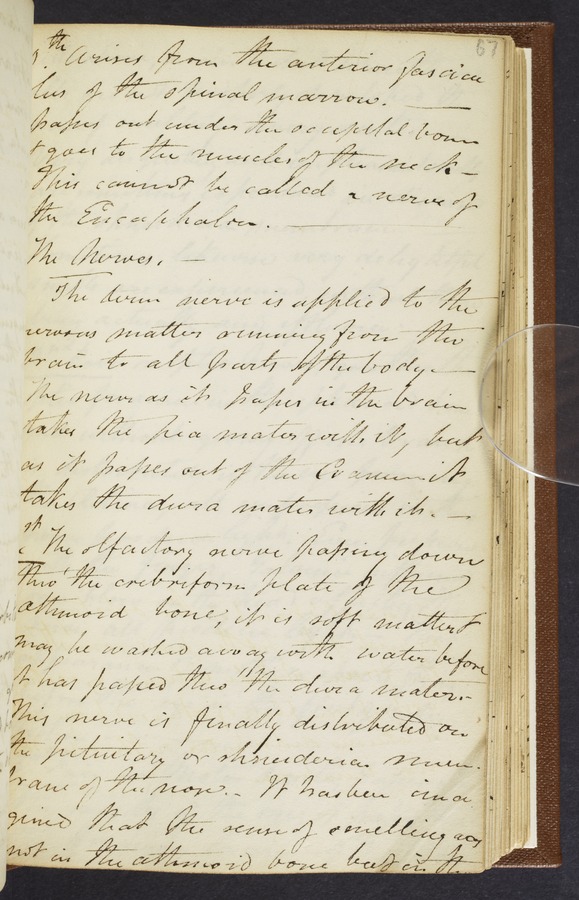 67
th arises from the anterior fascicu
lus of the spinal marrow.
passes out under the occipital bone
& goes to the muscles of the neck –
This cannot be called a nerve of
the Encephalon.
The Nerves. –
The term nerve is applied to the
nervous matter running from the
brain to all parts of the body –
The nerve as it passes in the brain
takes the pia mater with it, but
as it passes out of the Cranium it
takes the dura mater with it. –
st The olfactory nerve passing down
thro' the cribriform plate of the
athmoid bone, it is soft matter &
may be washed away with water before
it has passed thro' the dura mater. –
This nerve is finally distributed on
the pituitary or shneiderian mem-
brane of the nose. – It has been ima
gined that the sense of smelling was
not in the athmoid bone but in the